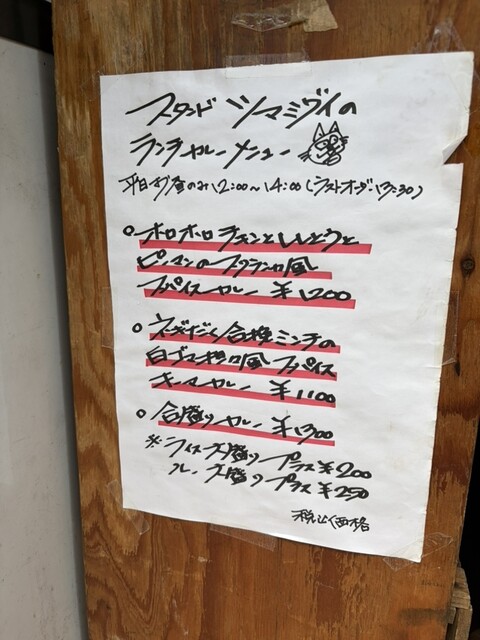 スタンド ツマミヴイの
ランチカレーメニュー
平日お昼のみ12:00〜14:00(ラストオーダー13:30)
○ホロホロチキンとししとうと
ピーマンの
スパイスカレー ¥1200
○ネギだく合挽ミンチの
白ゴマ担々風スパイス
キーマカレー ¥1100
○合盛りカレー ¥1300
※ライス大盛りプラス¥200
ルー大盛りプラス¥250
税込価格